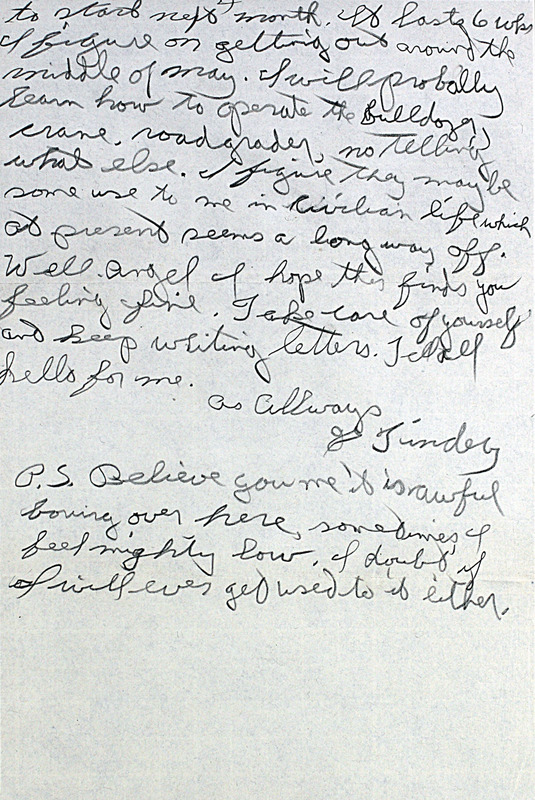 to start next month. It lasts 6 wks
I figure on getting out around the
middle of may. I will probally
learn how to operate the Bulldozer,
crane, roadgrader, no telling
what else. I figure they may be
some use to me in civilian life which
at present seems a long way off.
Well Angel I hope this finds you
feeling fine. Take care of yourself
and keep writing letters. Tell all
hello for me.
as Allways
P.S. Believe you me it is awful
boring over here, sometimes I
feel mighty low. I doubt if
I will ever get used to it either.